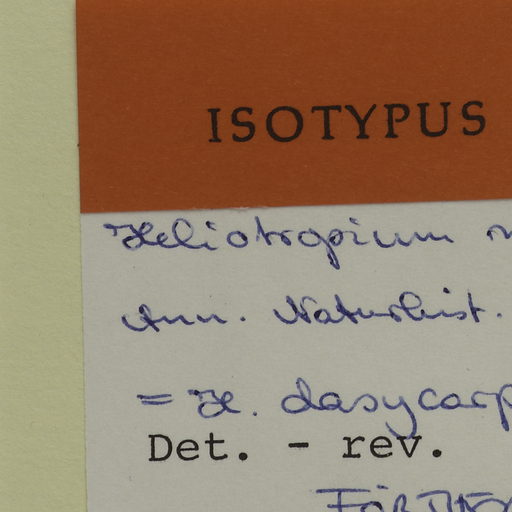 ISOTYPUS
Heliotropium
Ann. Naturhist.
= H. dasycarp
Det. - rev.